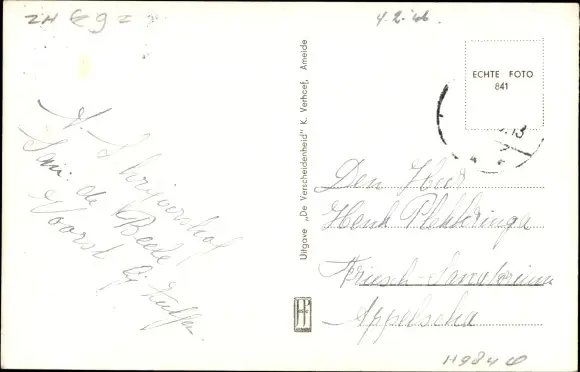 ZH
4.2.46
ECHTE FOTO
841
J. Schrijvershof
San: de Beele
Voorst bij Zutfen.
Uitgave „De Verscheidenheid" K. Verhoef, Ameide
Den Heer
Henk Plekkringa
Friesch-Sanatorium
Appelscha
H984